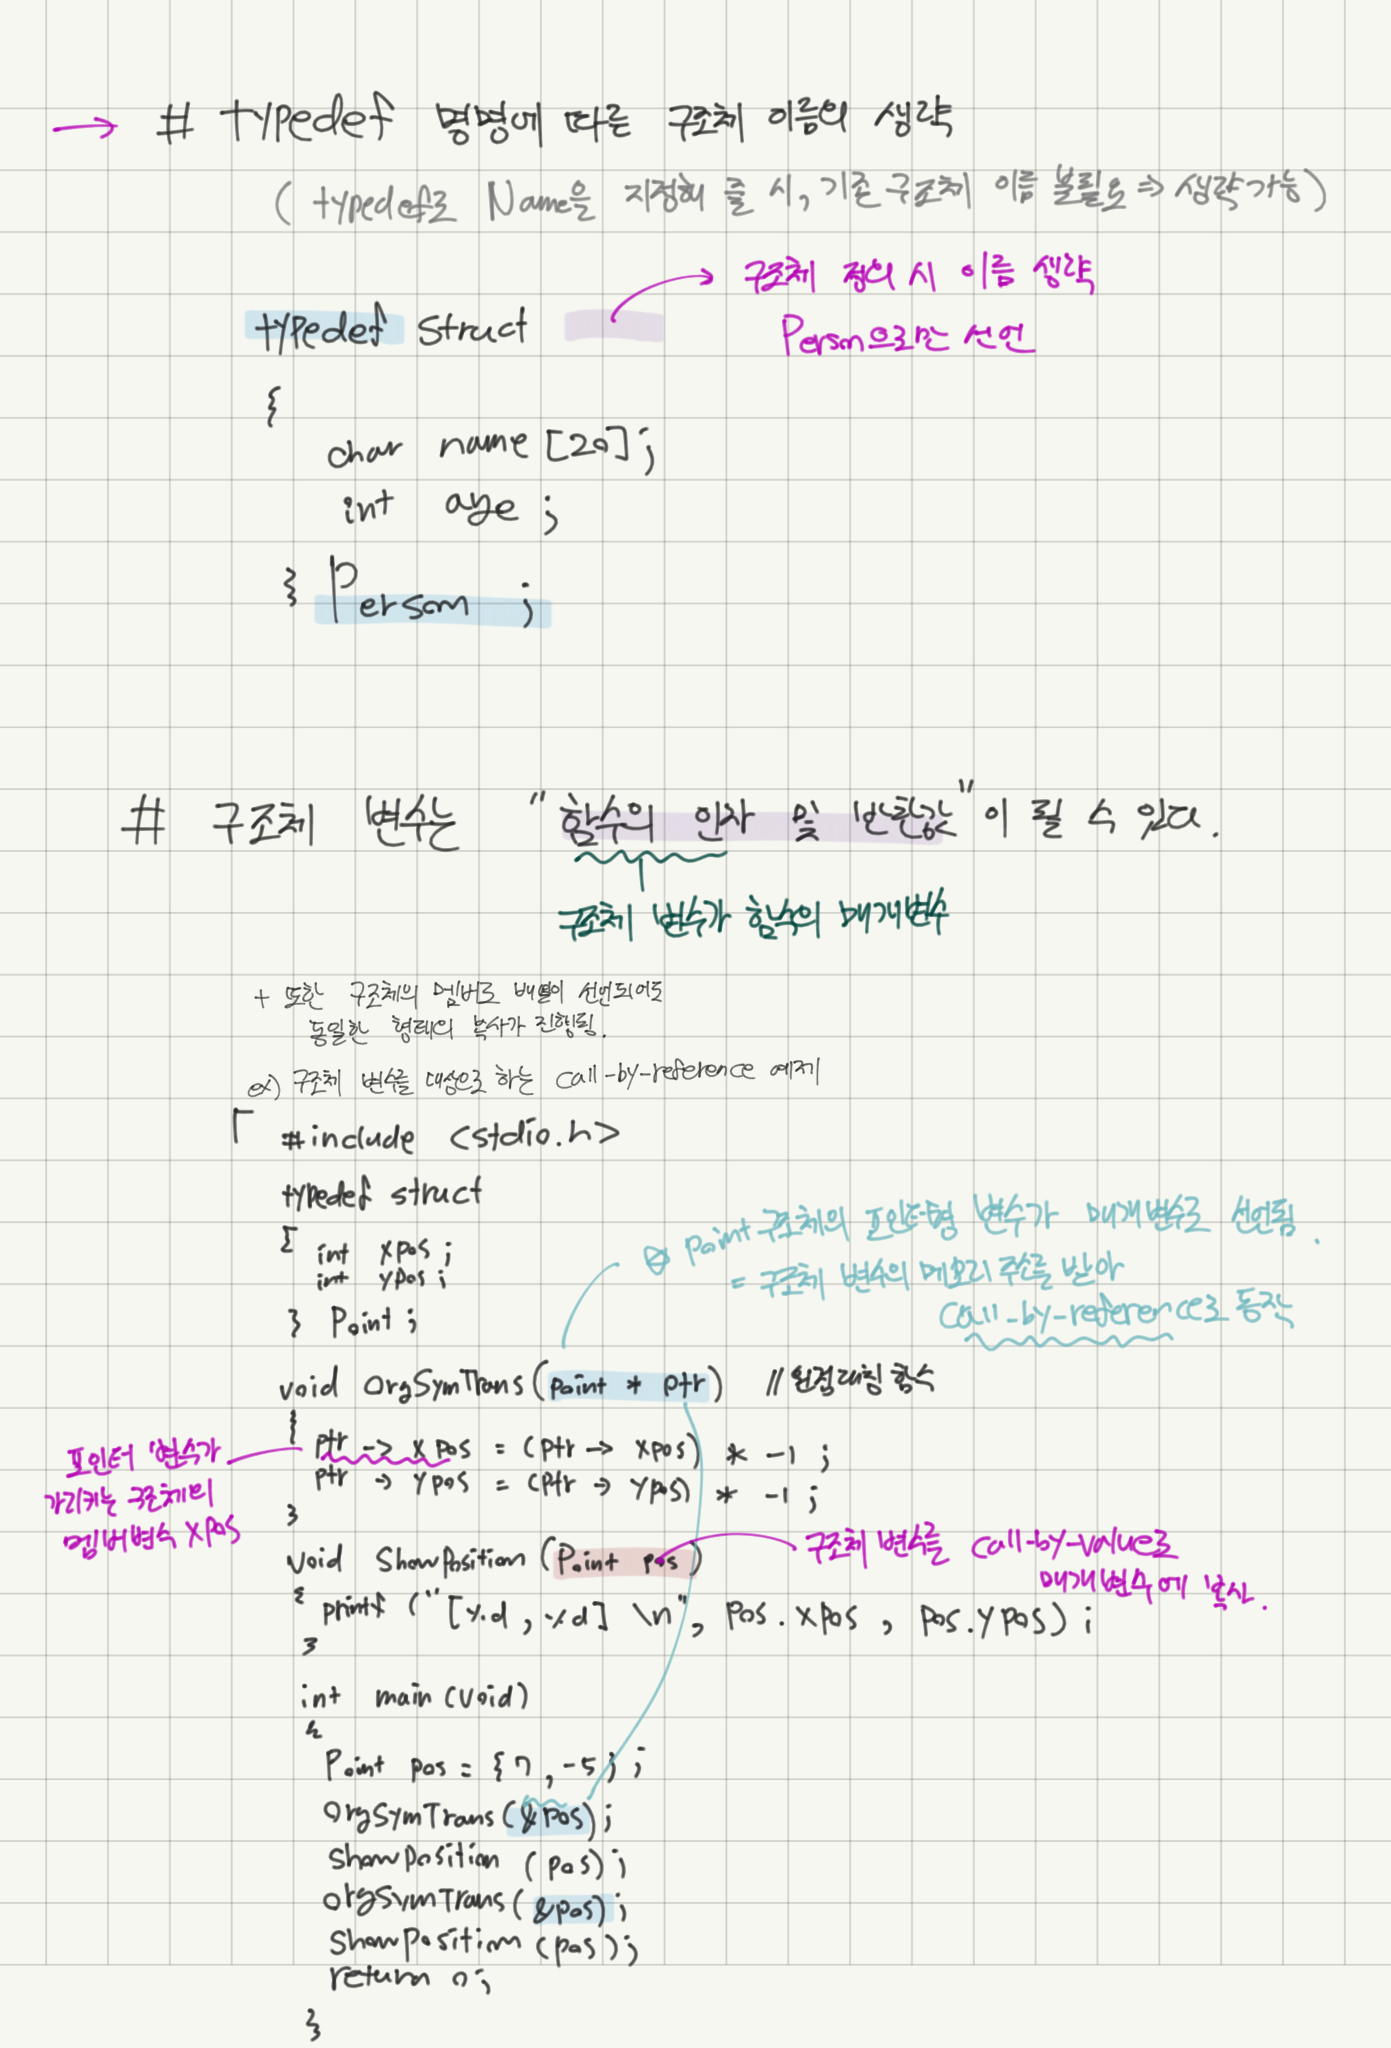 → # typedef 명명에 따른 구조체 이름의 생략
( typedef로 Name을 지정해 줄 시, 기존 구조체 이름 불필요 ⇒ 생략가능 )
구조체 정의 시 이름 생략
Person으로만 선언
typedef struct
{
char name [20];
int age ;
} Person ;
# 구조체 변수는 "함수의 인자 및 반환값"이 될 수 있다.
구조체 변수가 함수의 매개변수
+ 또한 구조체의 멤버로 배열이 선언되어도
동일한 형태의 복사가 진행됨.
ex) 구조체 변수를 대상으로 하는 call-by-reference 예제
「 #include <stdio.h>
typedef struct
{ int xpos ;
int ypos ;
} Point ;
point 구조체의 포인터형 변수가 매개변수로 선언됨.
= 구조체 변수의 메모리 주소를 받아
call-by-reference로 동작
void OrgSymTrans(point * ptr) // 원점대칭 함수
{
ptr -> xpos = (ptr -> xpos) * -1 ;
ptr -> ypos = (ptr -> ypos) * -1 ;
}
포인터 변수가
가리키는 구조체의
멤버변수 xpos
void ShowPosition (Point pos)
구조체 변수를 call-by-value로
매개변수에 복사.
{ printf ("[%d, %d] \n", pos.xpos , pos.ypos) ;
}
int main (void)
{
Point pos = {7, -5} ;
OrgSymTrans(&pos);
ShowPosition (pos) ;
OrgSymTrans(&pos);
ShowPosition (pos);
return 0;
}